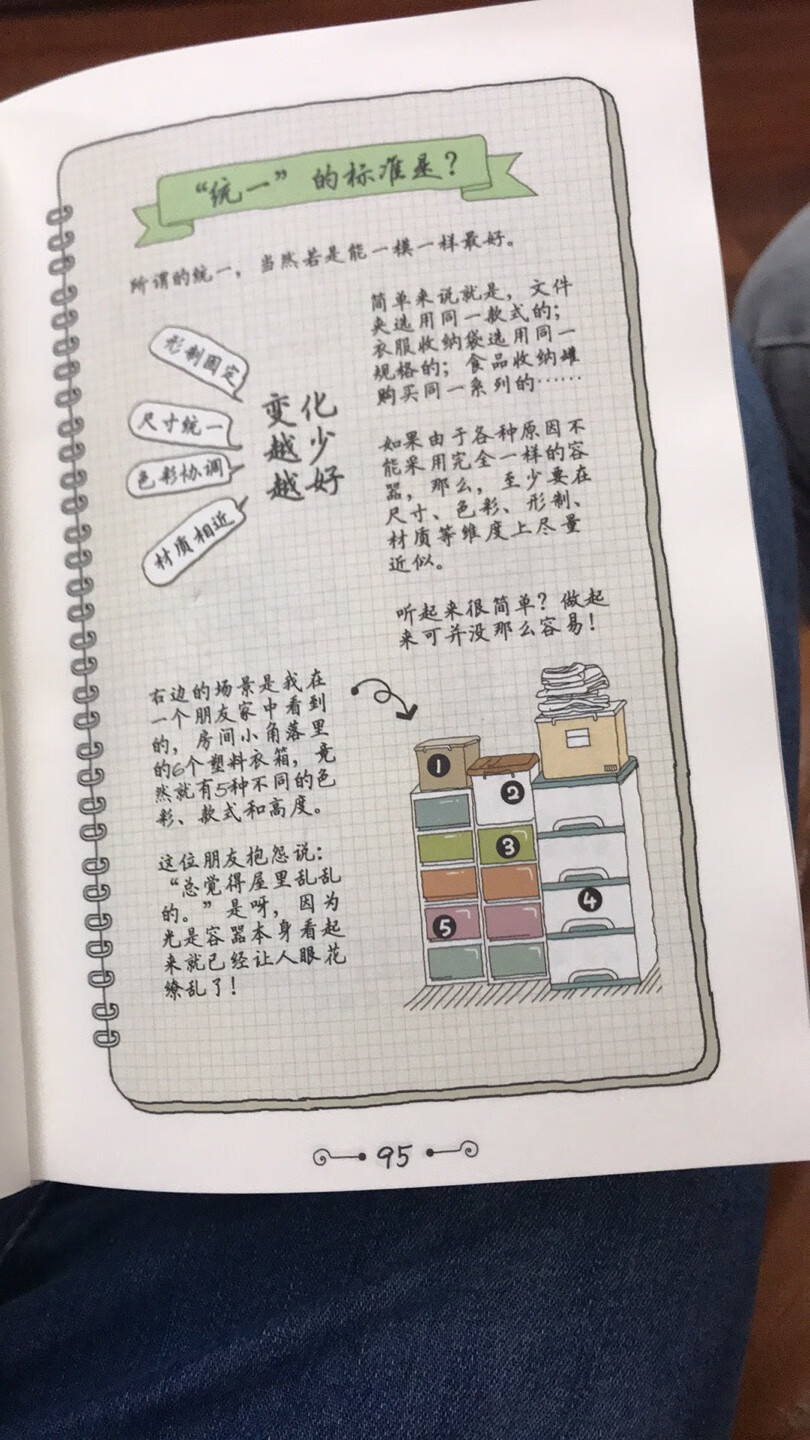 “统一”的标准是？
所谓的统一，当然若是能一模一样最好。
形制固定
尺寸统一
色彩协调
材质相近
变化
越少
越好
简单来说就是，文件
夹选用同一款式的；
衣服收纳袋选用同一
规格的；食品收纳罐
购买同一系列的……
如果由于各种原因不
能采用完全一样的容
器，那么，至少要在
尺寸、色彩、形制、
材质等维度上尽量
近似。
听起来很简单？做起
来可并没那么容易！
右边的场景是我在
一个朋友家中看到
的，房间小角落里
的6个塑料衣箱，竟
然就有5种不同的色
彩、款式和高度。
这位朋友抱怨说：
“总觉得屋里乱乱
的。”是呀，因为
光是容器本身看起
来就已经让人眼花
缭乱了！
1
2
3
4
5
95